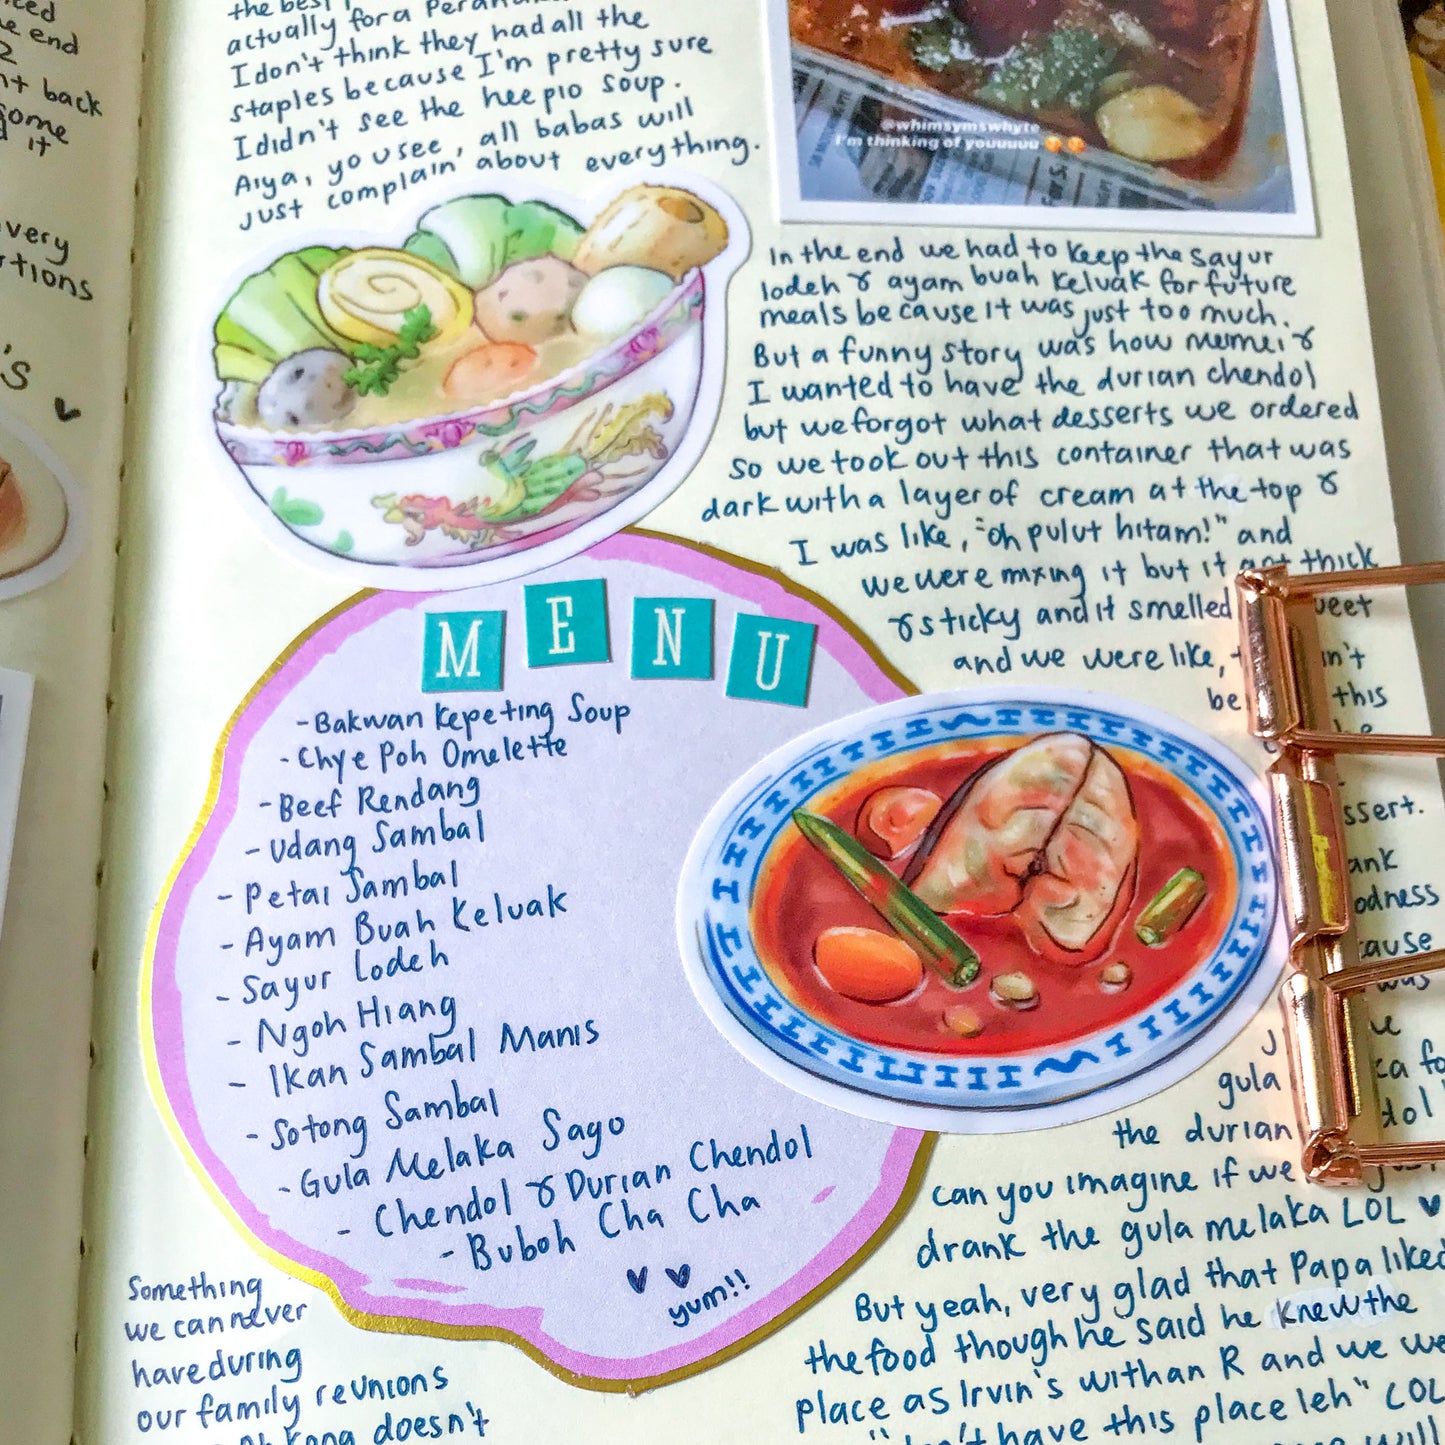 the end
back
some
it
very
's
the best
actually for a
I don't think they had all the
staples because I'm pretty sure
I didn't see the hee pio soup.
Aiya, you see, all babas will
just complain about everything.
@whimsymswhyte
I'm thinking of youuuuu
In the end we had to keep the sayur
lodeh & ayam buah keluak for future
meals because it was just too much.
But a funny story was how meimei &
I wanted to have the durian chendol
but we forgot what desserts we ordered
so we took out this container that was
dark with a layer of cream at the top &
I was like, "oh pulut hitam!" and
we were mixing it but it got thick
& sticky and it smelled
and we were like,
be this
MENU
- Bakwan Kepeting Soup
- Chye Poh Omelette
- Beef Rendang
- Udang Sambal
- Petai Sambal
- Ayam Buah Keluak
- Sayur Lodeh
- Ngoh Hiang
- Ikan Sambal Manis
- Sotong Sambal
- Gula Melaka Sago
- Chendol & Durian Chendol
- Buboh Cha Cha
yum!!
gula
the durian
can you imagine if we just
drank the gula melaka LOL
But yeah, very glad that Papa liked
the food though he said he knew the
place as Irvin's withan R and we we
have this place leh" LOL
will
Something
we can never
have during
our family reunions
doesn't